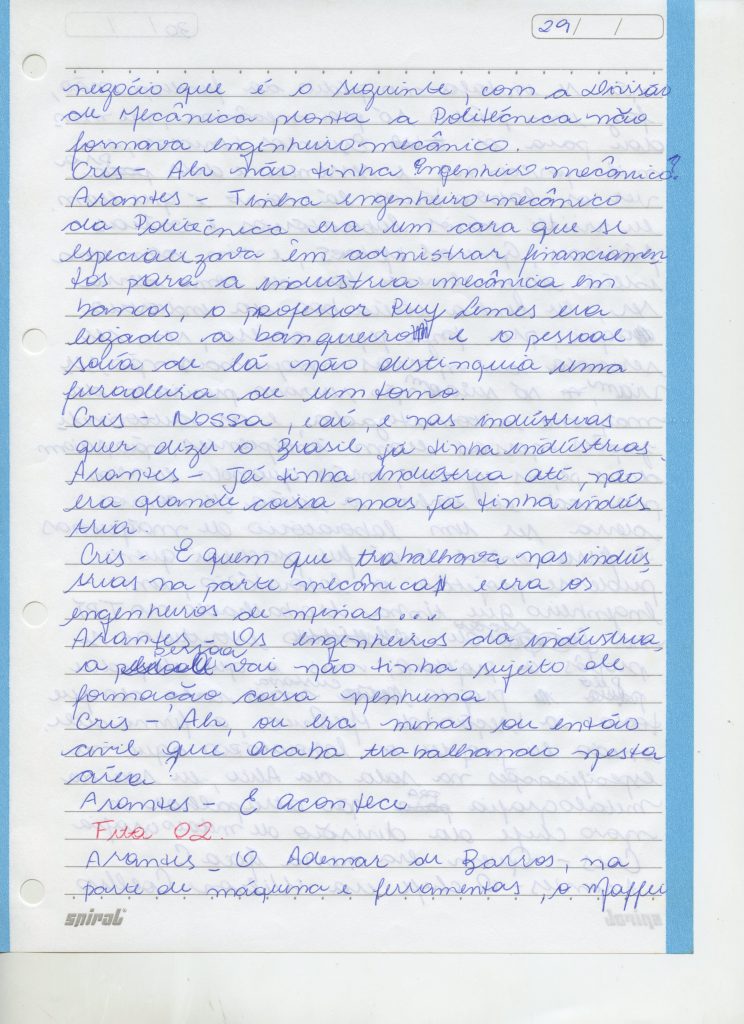 29/ /
negócio que é o seguinte, com a Divisão
de Mecânica pronta a Politécnica não
formava engenheiro mecânico.
Cris - Ah não tinha Engenheiro mecânico?
Arantes - Tinha engenheiro mecânico
da Politécnica era um cara que se
especializava em admistrar financiamen
tos para a industria mecânica em
bancos, o professor Ruy Lemes era
ligado a banqueiro e o pessoal
saía de lá não distinguia uma
furadeira de um torno.
Cris - Nossa, e aí, e nas indústrias
quer dizer o Brasil já tinha indústrias.
Arantes - Já tinha indústria até, não
era grande coisa mas já tinha indús
tria.
Cris - E quem que trabalhava nas indús
trias na parte mecânica e era os
engenheiros de minas ...
Arantes - Os engenheiros da indústria,
a pessoa vai não tinha sujeito de
formação coisa nenhuma
Cris - Ah, ou era minas ou então
civil que acaba trabalhando nesta
área.
Arantes - E acontece
Fita 02.
Arantes - O Ademar de Barros, na
parte de máquina e ferramentas, o Maffei
spiral